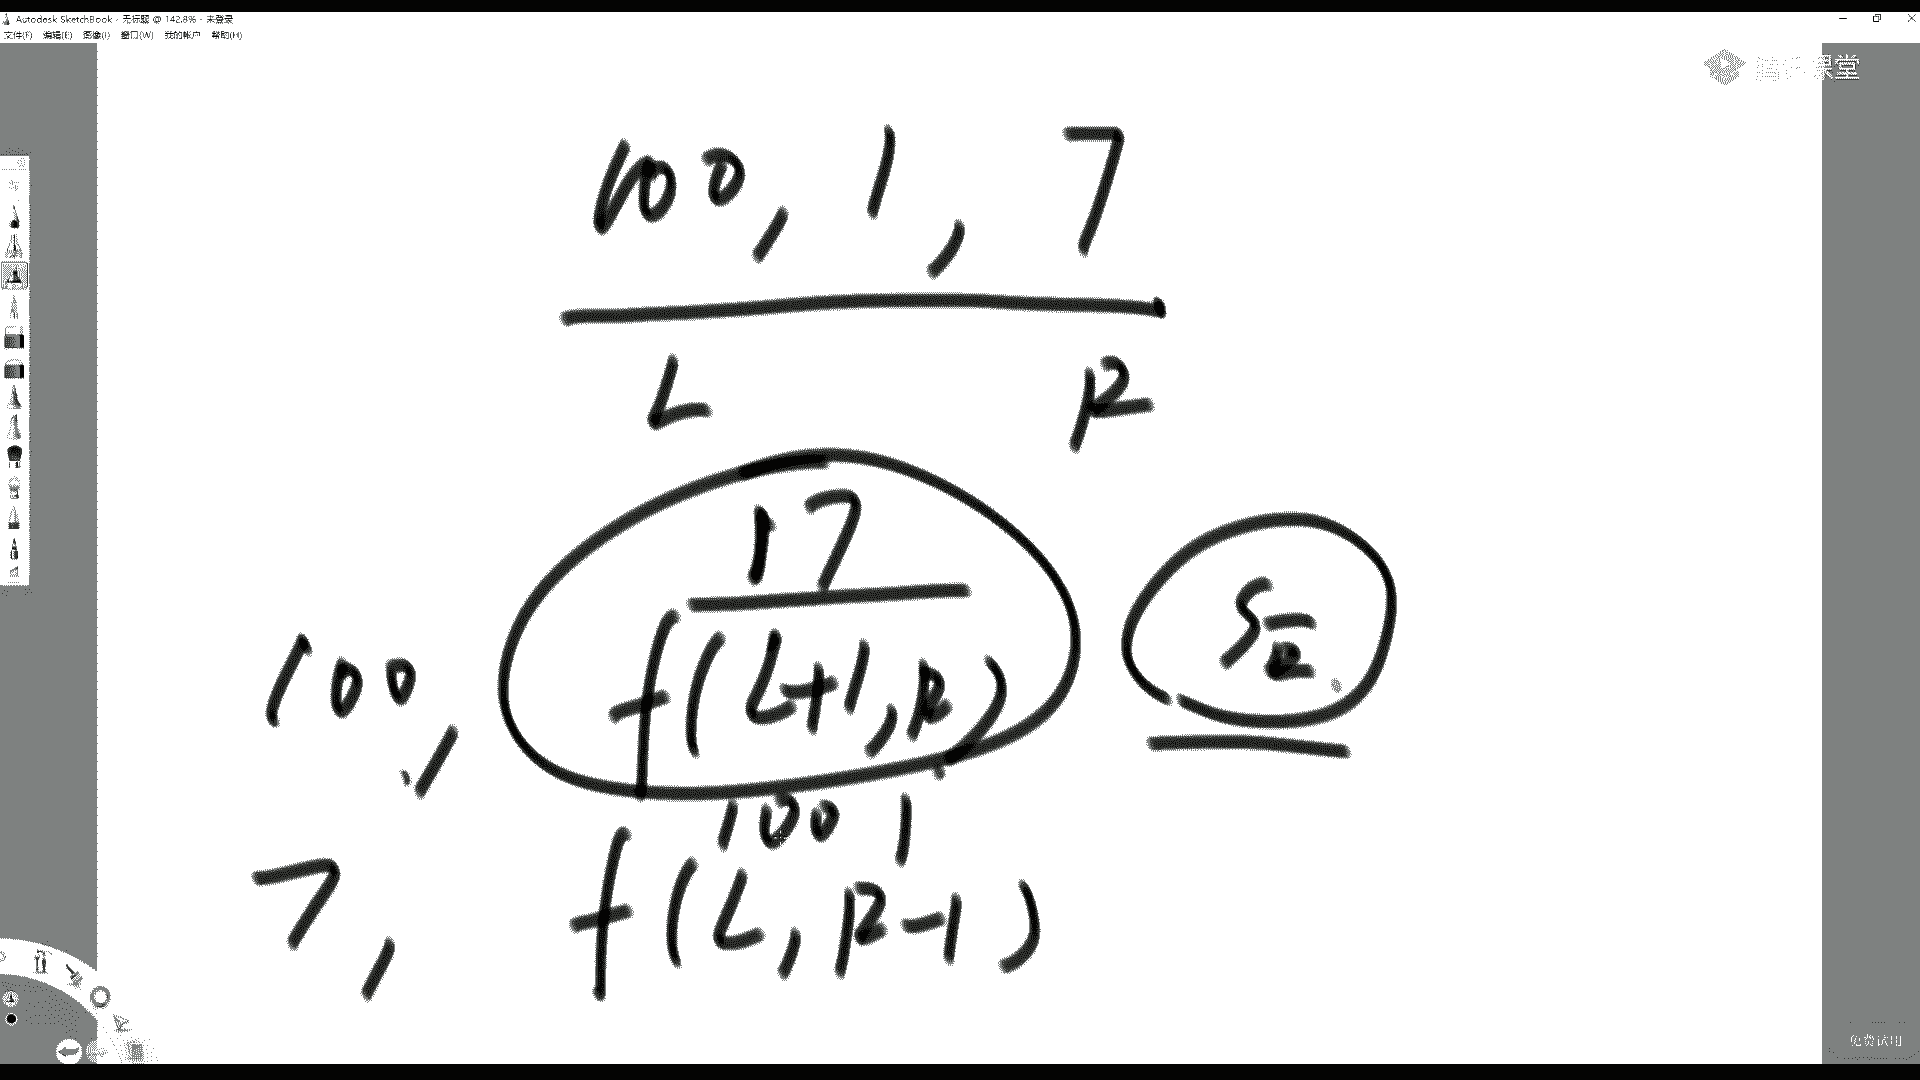 Autodesk SketchBook - 无标题 @ 142.8% - 未登录
文件(F) 编辑(E) 图像(I) 窗口(W) 我的帐户 帮助(H)
腾讯课堂
100, 1, 7
L R
1 7
100, f(L+1, R)
100 1
7, f(L, R-1)
免费试用